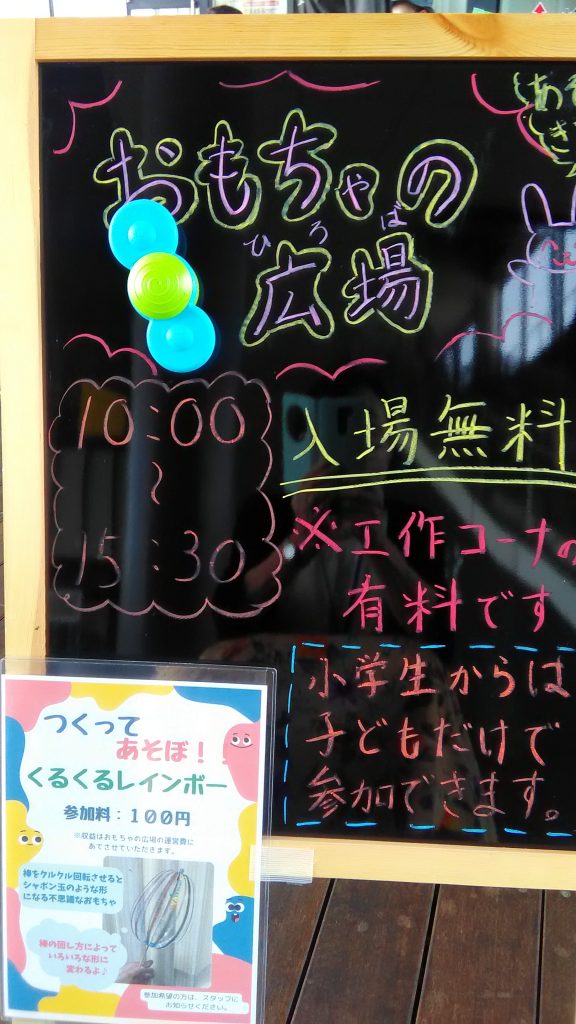 おもちゃの
ひろば
広場
10:00
~
15:30
入場無料
※工作コーナの
有料です
小学生からは
子どもだけで
参加できます。
つくって
あそぼ！！
くるくるレインボー
参加料：１００円
※収益はおもちゃの広場の運営費に
あてさせていただきます。
棒をクルクル回転させると
シャボン玉のような形
になる不思議なおもちゃ
棒の回し方によって
いろいろな形に
変わるよ♪
参加希望の方は、スタッフに
お知らせください。